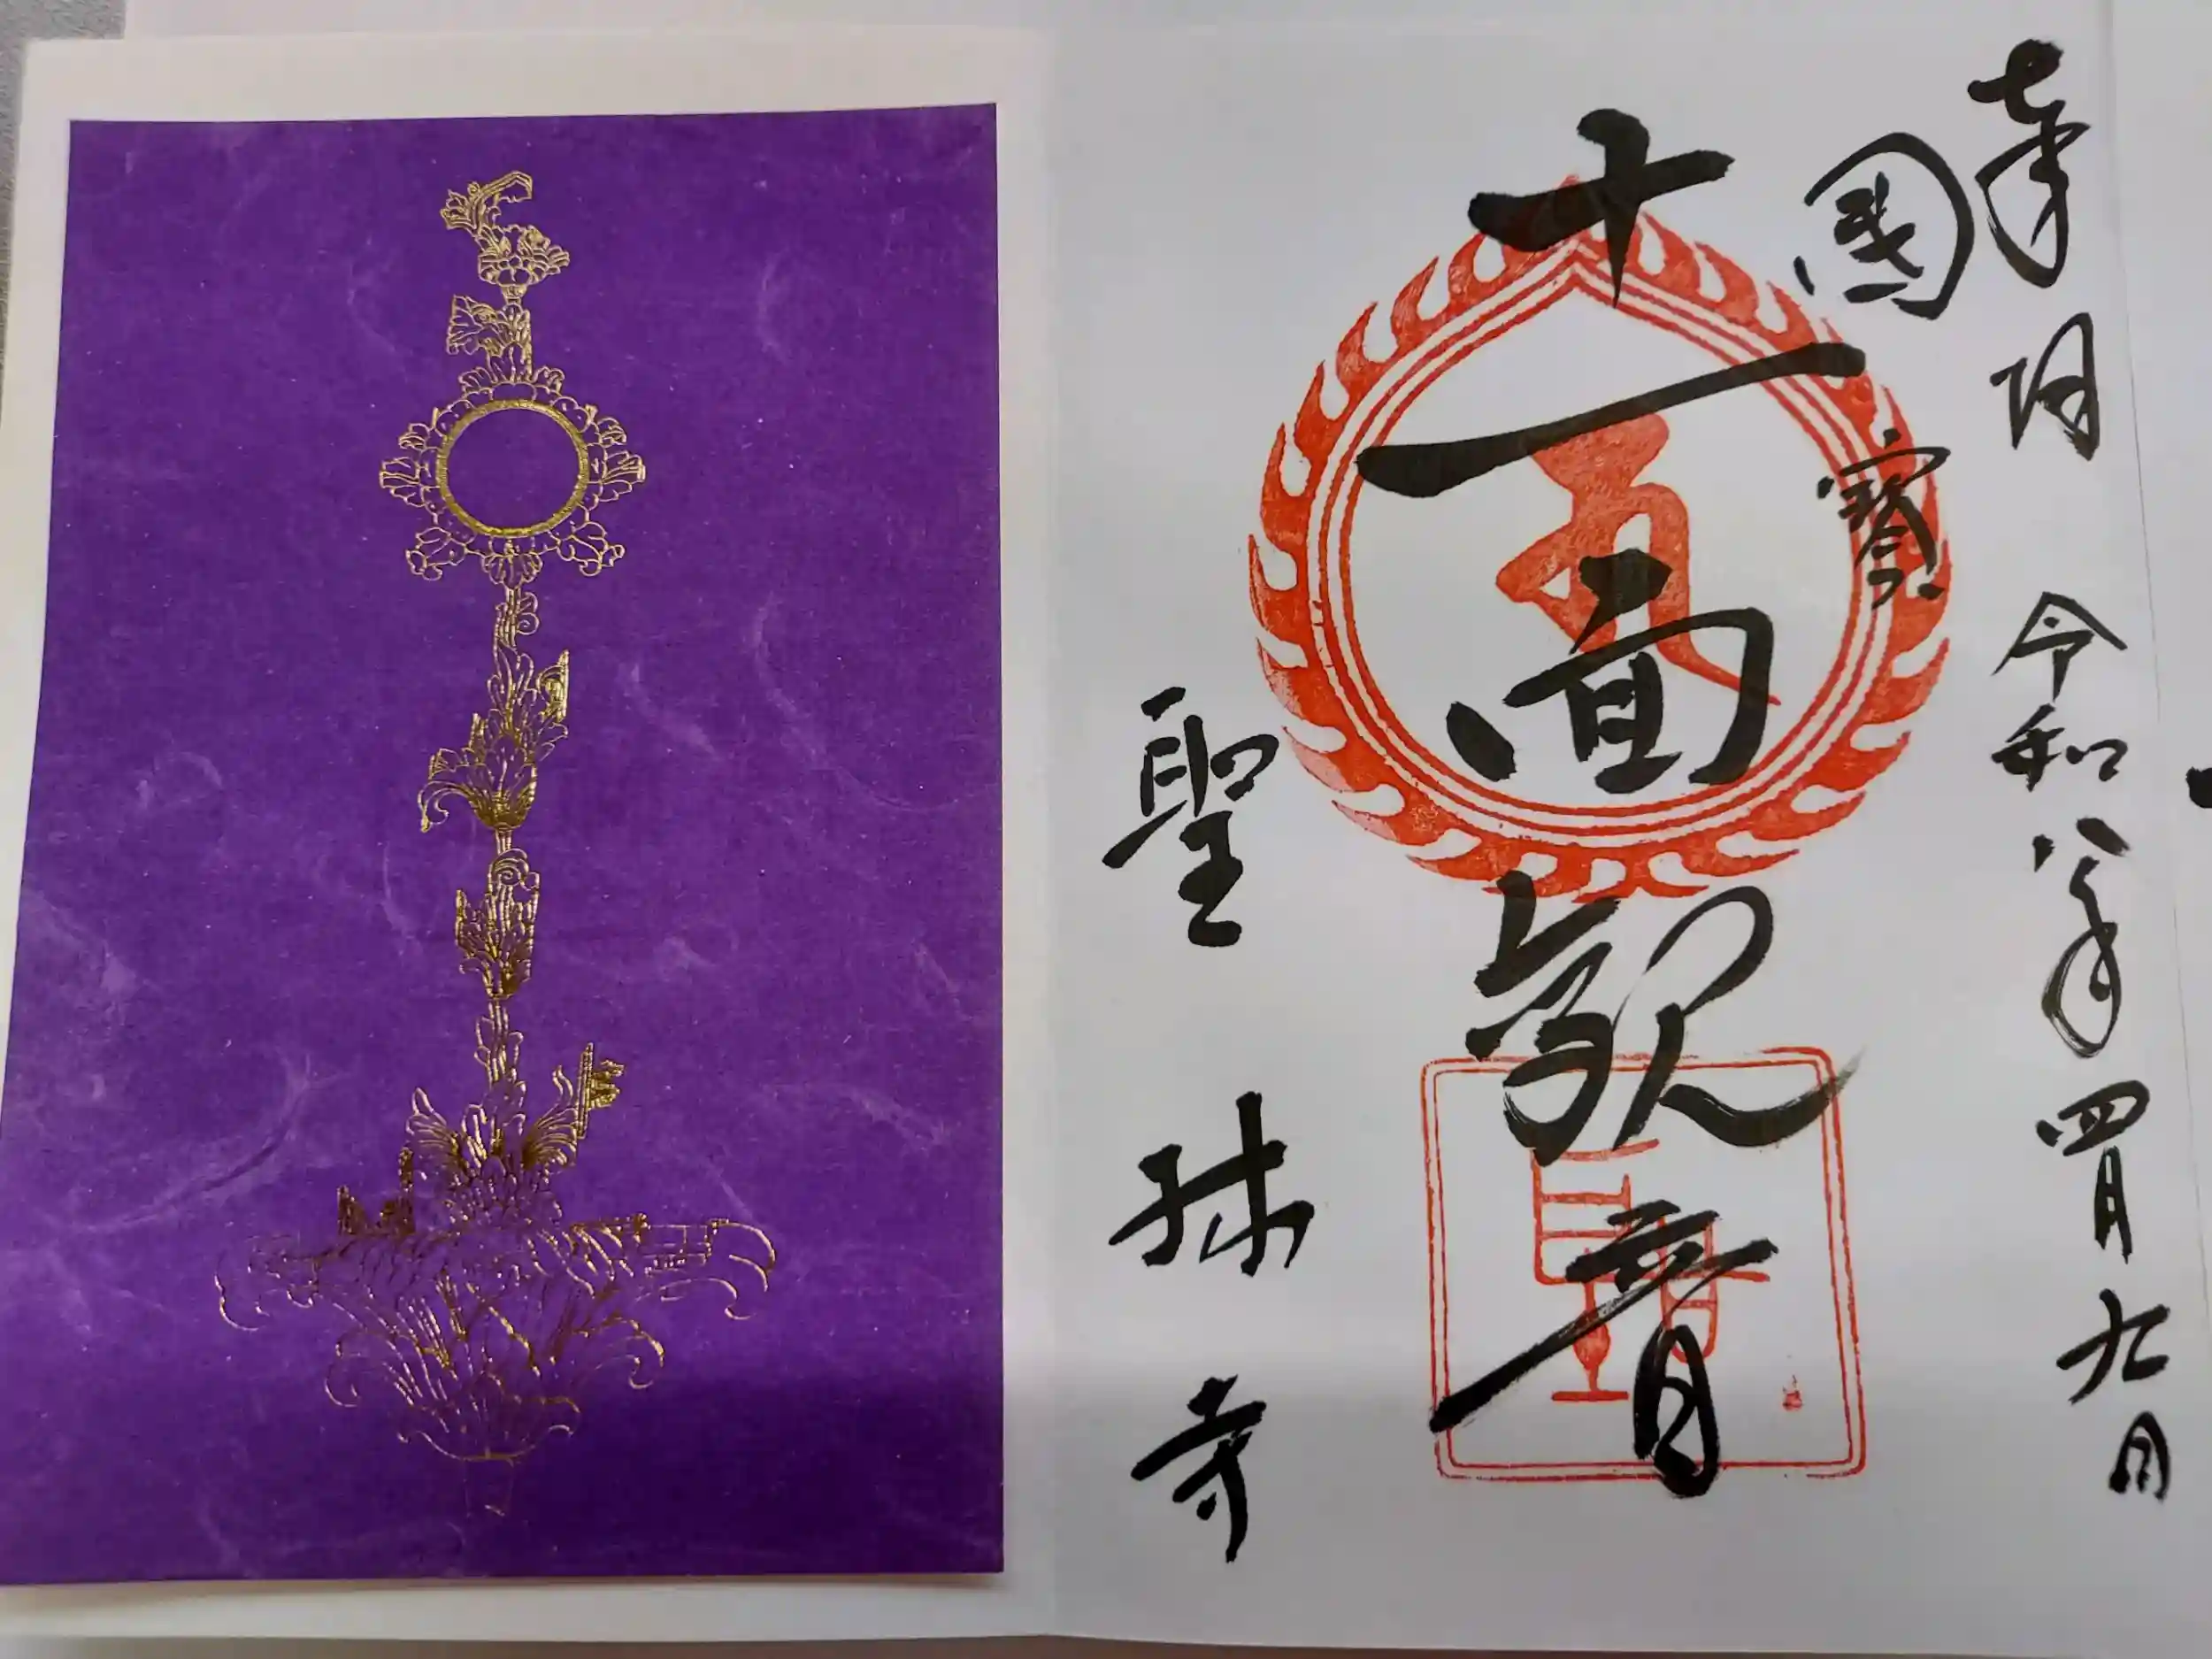 奉拝 令和八年四月九日
國寶
十一面観音
聖林寺